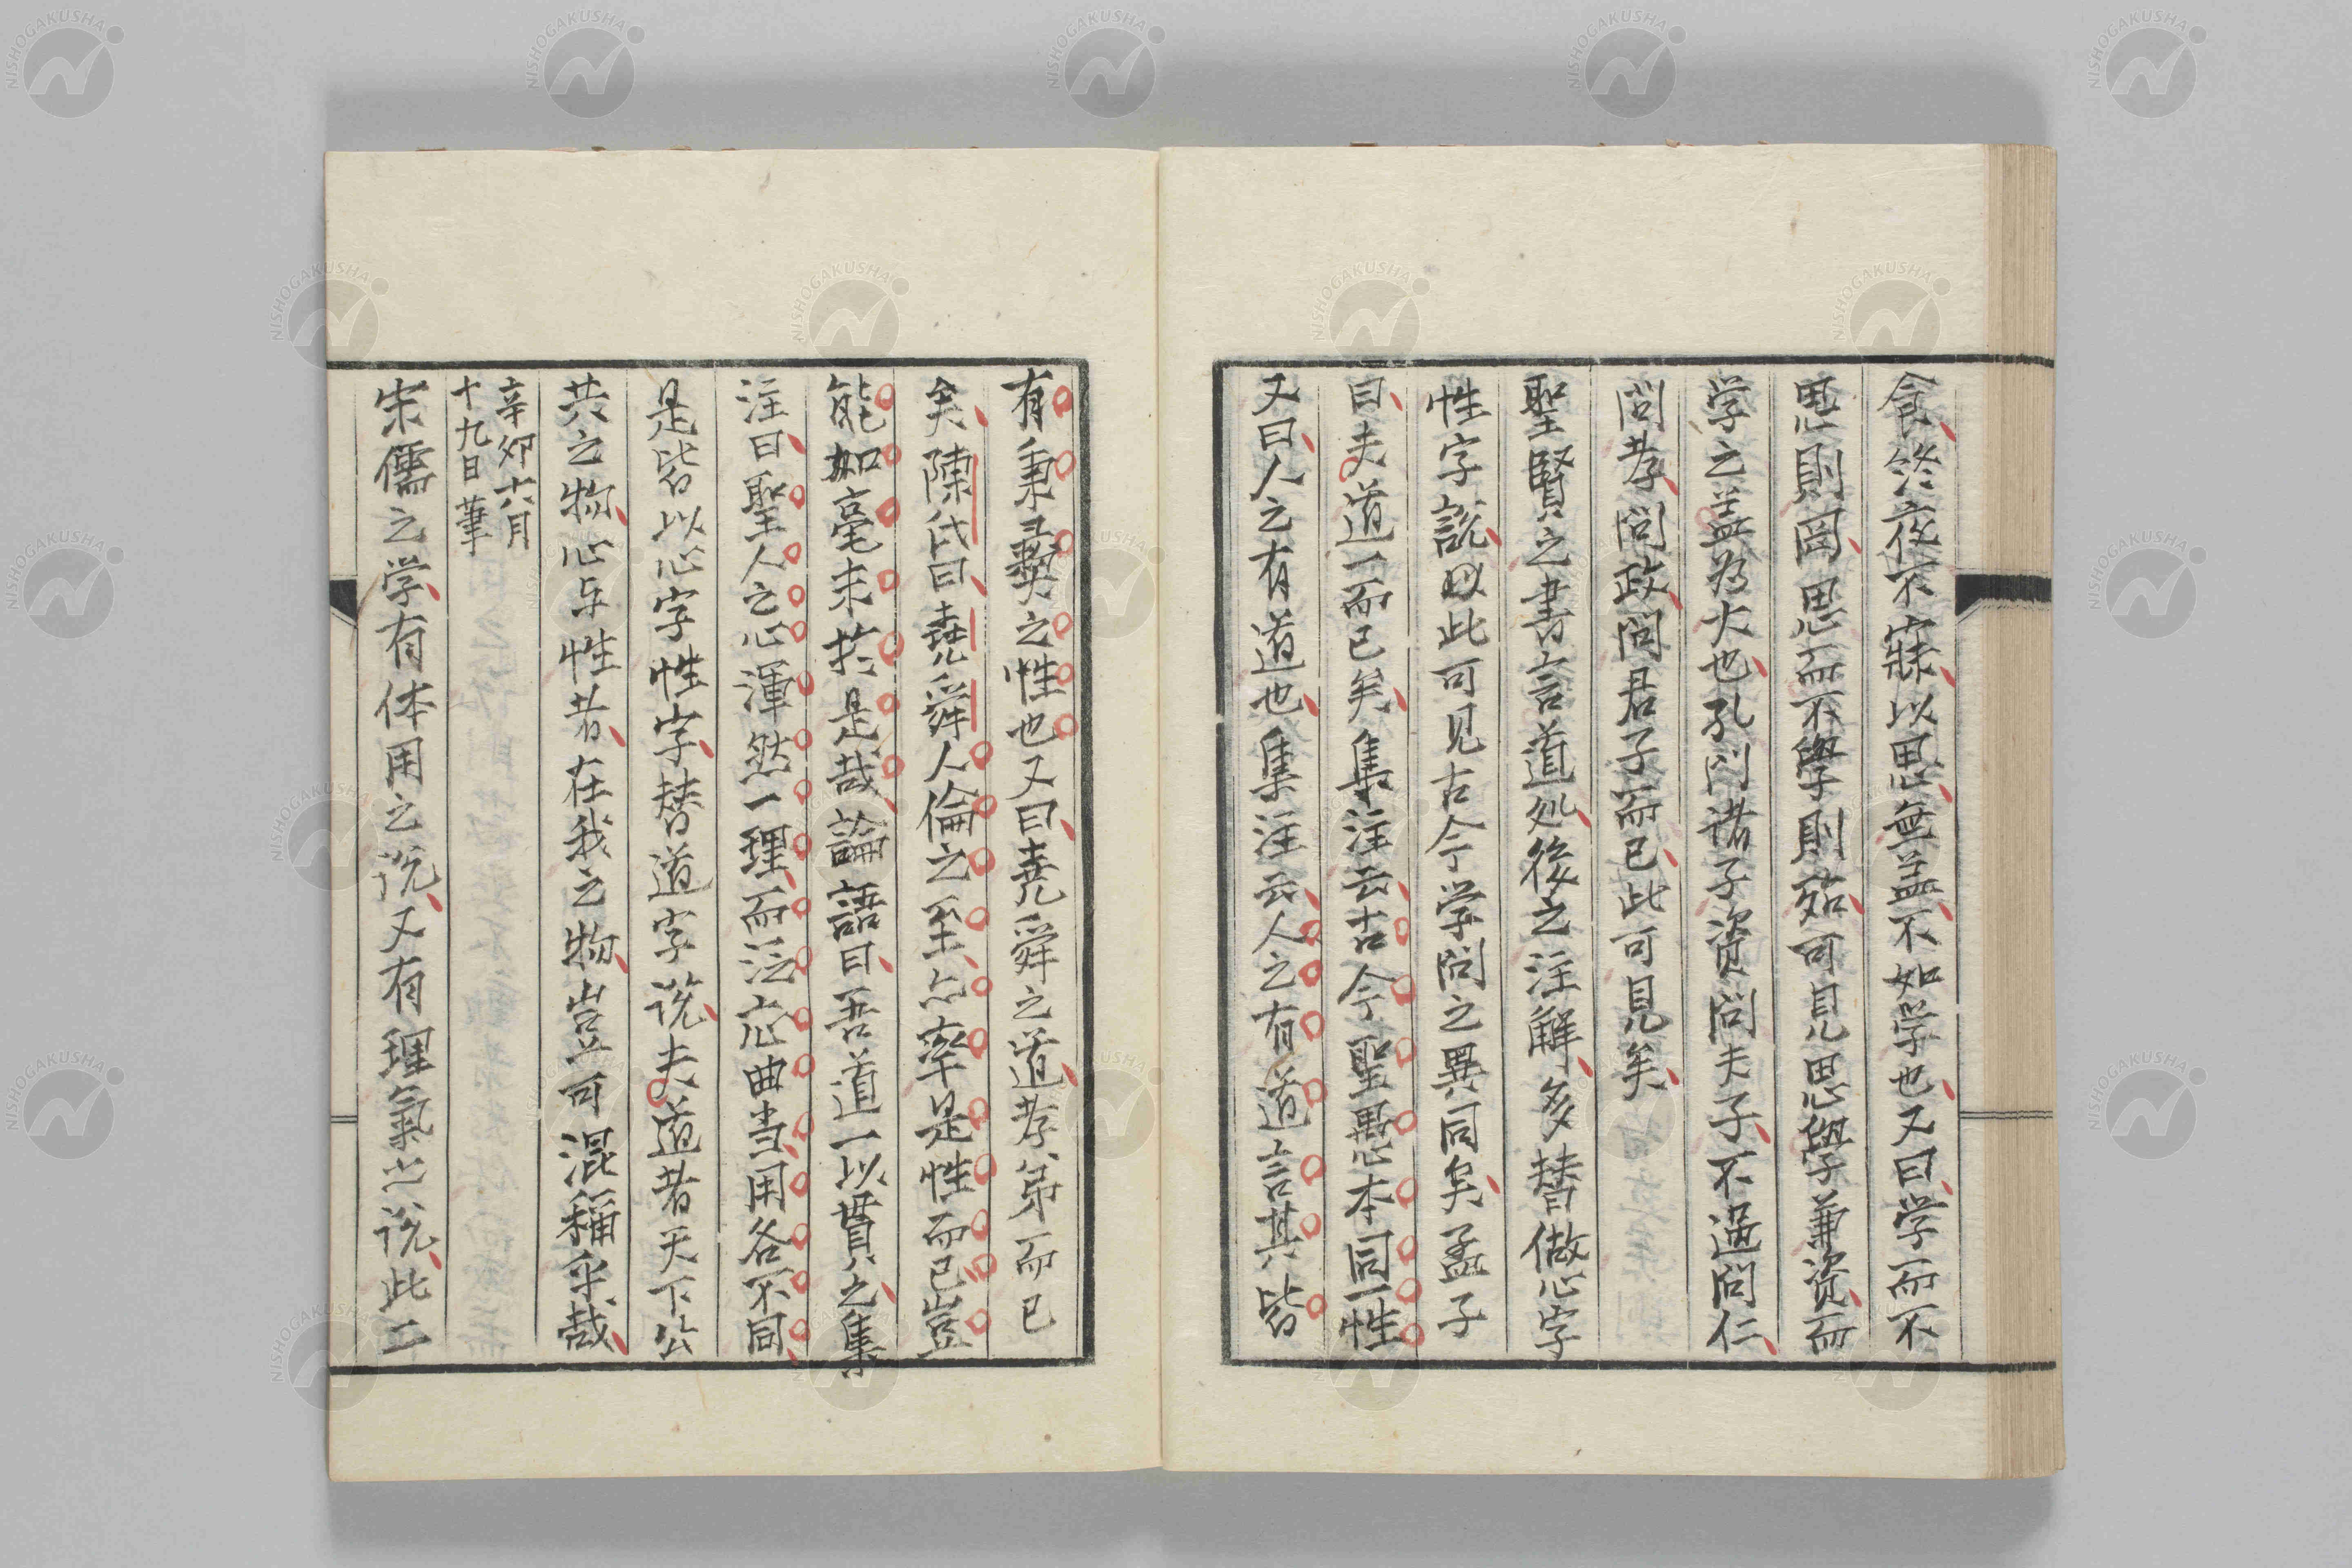 食終夜不寐以思無益不如学也又曰学而不
思則罔思而不學則殆可見思與学兼資而
学之益為大也孔門諸子資問夫子不過問仁
問孝問政問君子而已此可見矣
聖賢之書言道処後之注解多替做心字
性字説以此可见古今学問之異同矣孟子
曰夫道一而已矣集注云古今聖愚本同一性
又曰人之有道也集注云人之有道言其皆
有秉彝之性也又曰堯舜之道孝弟而已
矣陳氏曰堯舜人倫之至亦率是性而已豈
能加毫末於是哉論語曰吾道一以貫之集
注曰聖人之心渾然一理而泛応曲当用各不同
是皆以心字性字替道字说夫道者天下公
共之物心与性者在我之物豈可混稱乎哉
辛卯六月
十九日筆
宋儒之学有体用之说又有理氣之说此二
NISHOGAKUSHA